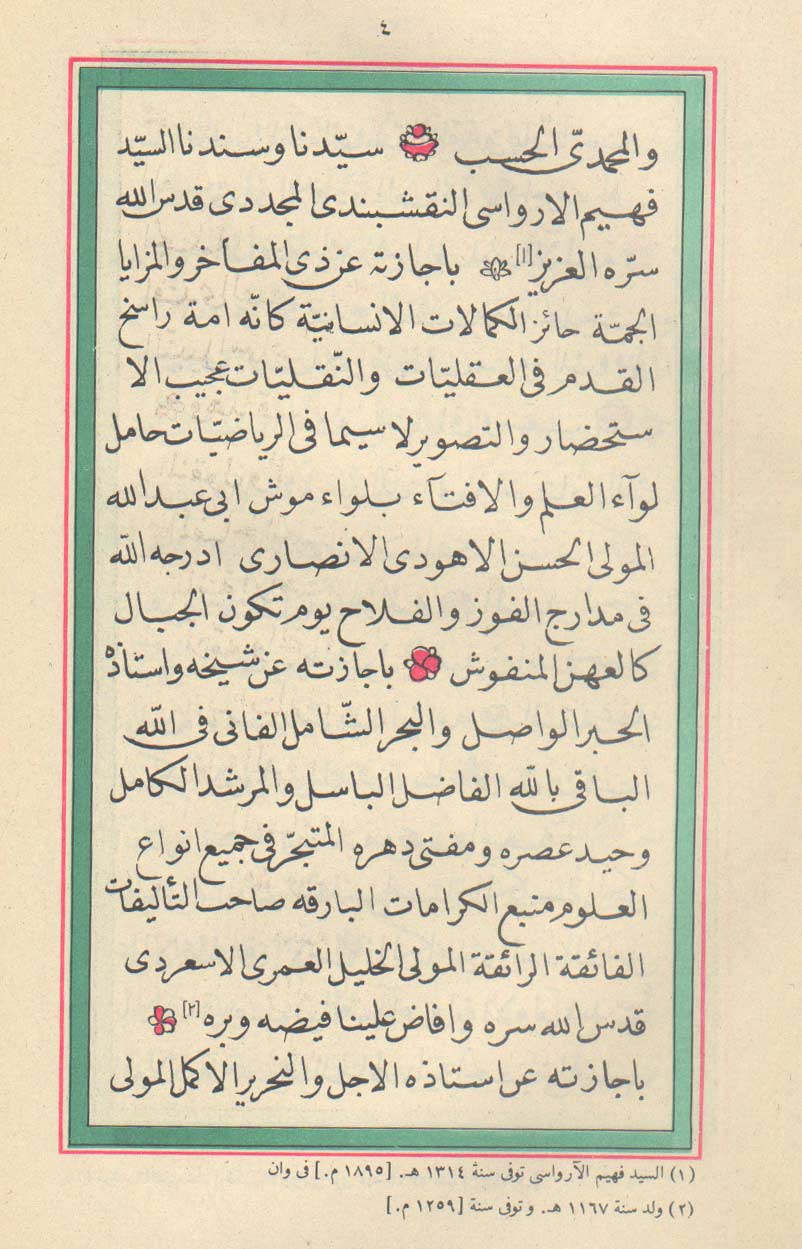 ٤
والمحمدىّ الحسب سيّدنا وسندنا السيّد
فهيم الارواسى النقشبندى المجددى قدس الله
سرّه العزيز [١] باجازته عن ذى المفاخر والمزايا
الجمّة حائز الكمالات الانسانيّة كانّه امة راسخ
القدم فى العقليّات والنّقليّات عجيب الا
ستحضار والتصوير لا سيما فى الرياضيّات حامل
لوآء العلم والافتآء بلواء موش ابى عبد الله
المولى الحسن الاهودى الانصارى ادرجه الله
فى مدارج الفوز والفلاح يوم تكون الجبال
كالعهن المنفوش باجازته عن شيخه واستاذه
الحبر الواصل والبحر الشّامل الفانى فى الله
الباقى بالله الفاضل الباسل والمرشد الكامل
وحيد عصره ومفتى دهره المتبحّر فى جميع انواع
العلوم منبع الكرامات البارقه صاحب التأليفات
الفائقة الرائقة المولى الخليل العمرى الاسعردى
قدس الله سره وافاض علينا فيضه وبره [٢]
باجازته عن استاذه الاجل والنحرير الاكمل المولى
(١) السيد فهيم الآرواسى توفى سنة ١٣١٤ هـ. [١٨٩٥ م.] فى وان
(٢) ولد سنة ١١٦٧ هـ. و توفى سنة [١٢٥٩ م.]